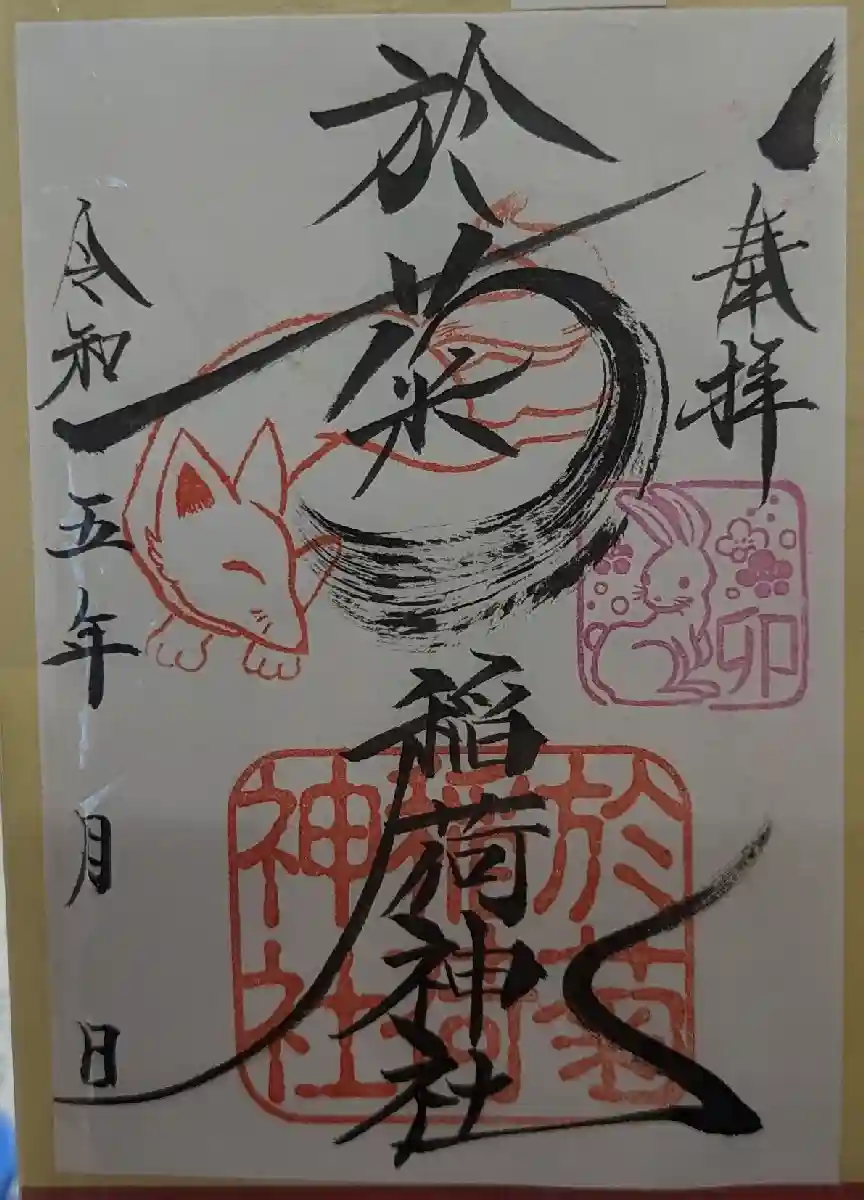 奉拝
卯
於菊稲荷神社
於菊
稲荷
神社
令和五年 月 日